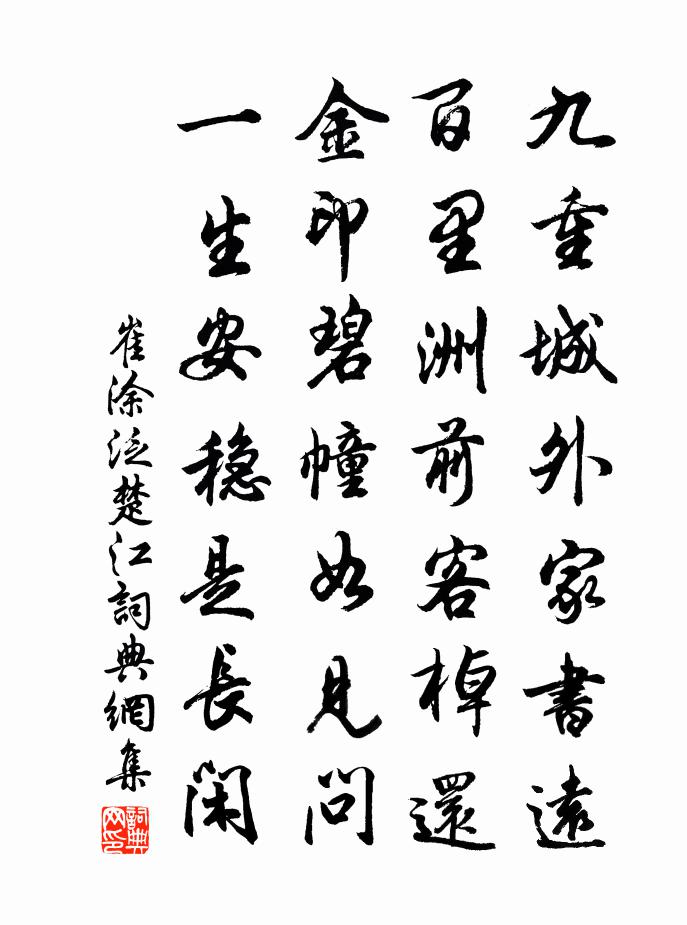 九重城外家書遠
百里洲前客棹還
金印碧幢如見問
一生安穩是長閑
崔涂泛楚江詞典網集
詞典网印